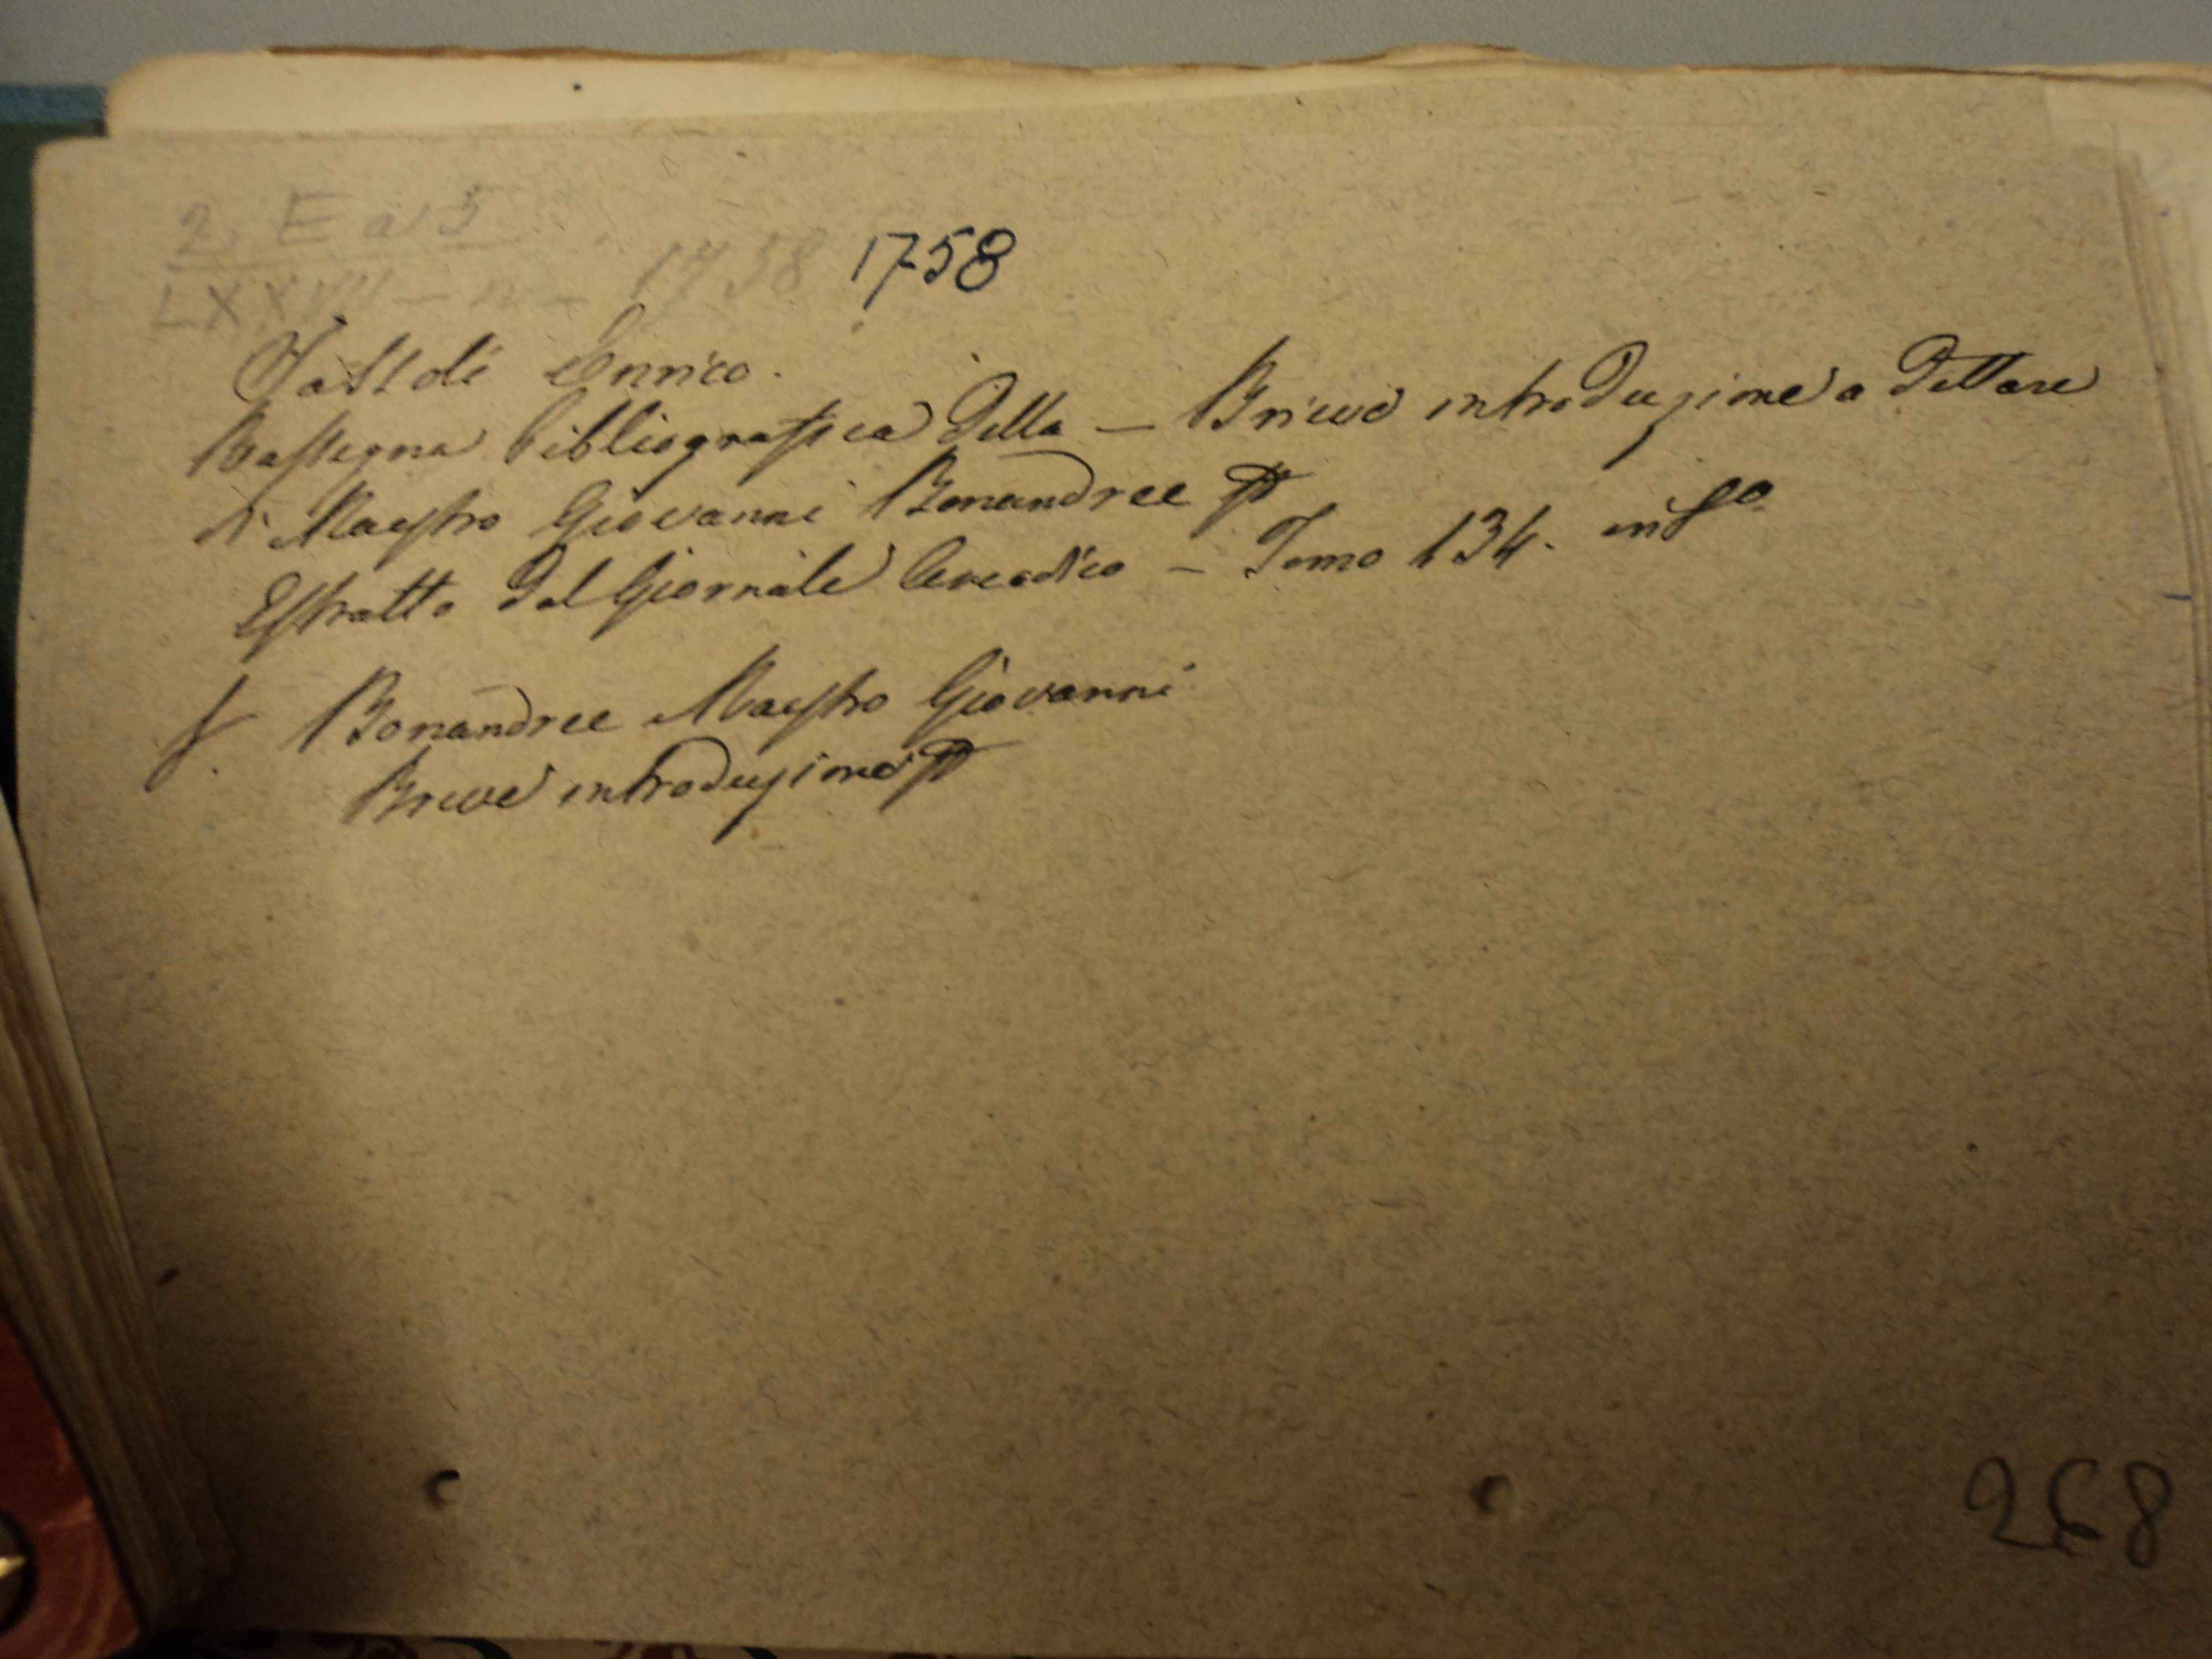 2. E a 5
LXXVII — 1758 1758
Enrico.
Rassegna bibliografica della — Brieve introduzione a dettare
di Maestro Giovanni Bonandree
Estratto dal Giornale Arcadico — Tomo 134. in f.o
Bonandree Maestro Giovanni
Brieve introduzione
268